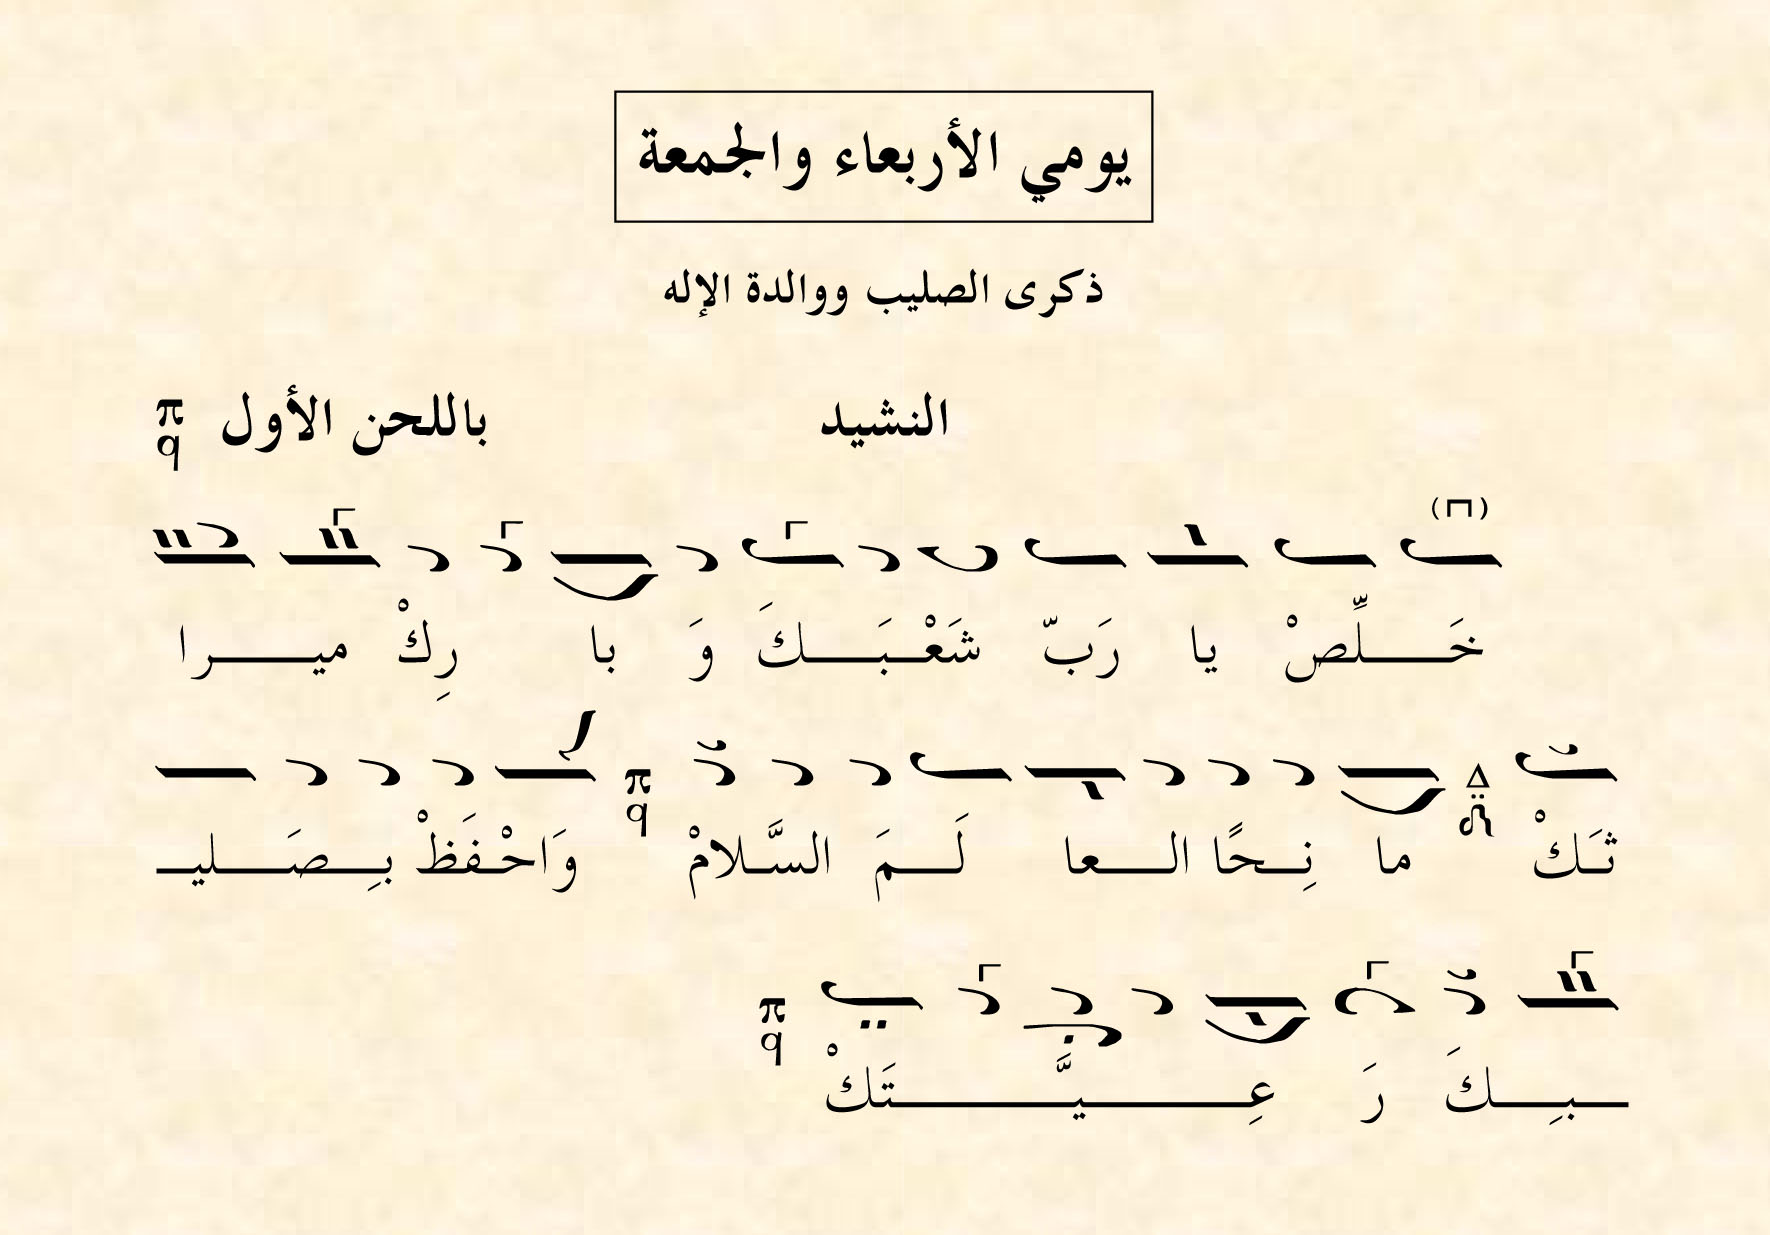 يومي الأربعاء والجمعة
ذكرى الصليب ووالدة الإله
النشيد باللحن الأول π q
(⊓)
خَـلِّصْ يا رَبّ شَعْـبَـكَ وَ با رِكْ ميـرا
ثَـكْ Δ ما نِـحًا الـعا لَـمَ السَّـلامْ π q وَاحْـفَظْ بِـصَـليـ
ـبِـكَ رَ عِـيَّـتَكْ π q